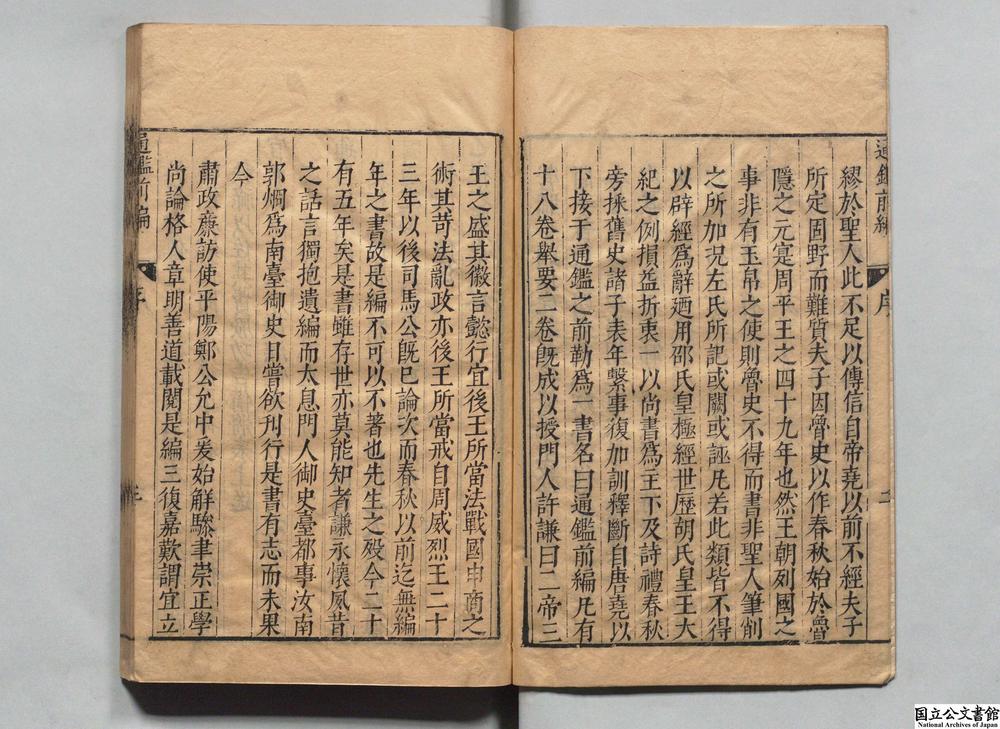 通鑑前編
序
二
繆於聖人此不足以傳信自帝堯以前不經夫子
所定固野而難質夫子因魯史以作春秋始於魯
隱之元寔周平王之四十九年也然王朝列國之
事非有玉帛之使則魯史不得而書非聖人筆削
之所加况左氏所記或闕或誣凡若此類皆不得
以辟經爲辭廼用邵氏皇極經世歷胡氏皇王大
紀之例損益折衷一以尚書爲主下及詩禮春秋
旁採舊史諸子表年繫事復加訓釋斷自唐堯以
下接于通鑑之前勒爲一書名曰通鑑前編凡有
十八卷舉要二卷旣成以授門人許謙曰二帝三
王之盛其徽言懿行宜後王所當法戰國申商之
術其苛法亂政亦後王所當戒自周威烈王二十
三年以後司馬公旣已論次而春秋以前迄無編
年之書故是編不可以不著也先生之殁今二十
有五年矣是書雖存世亦莫能知者謙永懷夙昔
之話言獨抱遺編而太息門人御史臺都事汝南
郭炯爲南臺御史日嘗欲刋行是書有志而未果
今
肅政廉訪使平陽鄭公允中爰始解驂聿崇正學
尚論格人章明善道載閱是編三復嘉歎謂宜立
通鑑前編
序
三
国立公文書館
National Archives of Japan